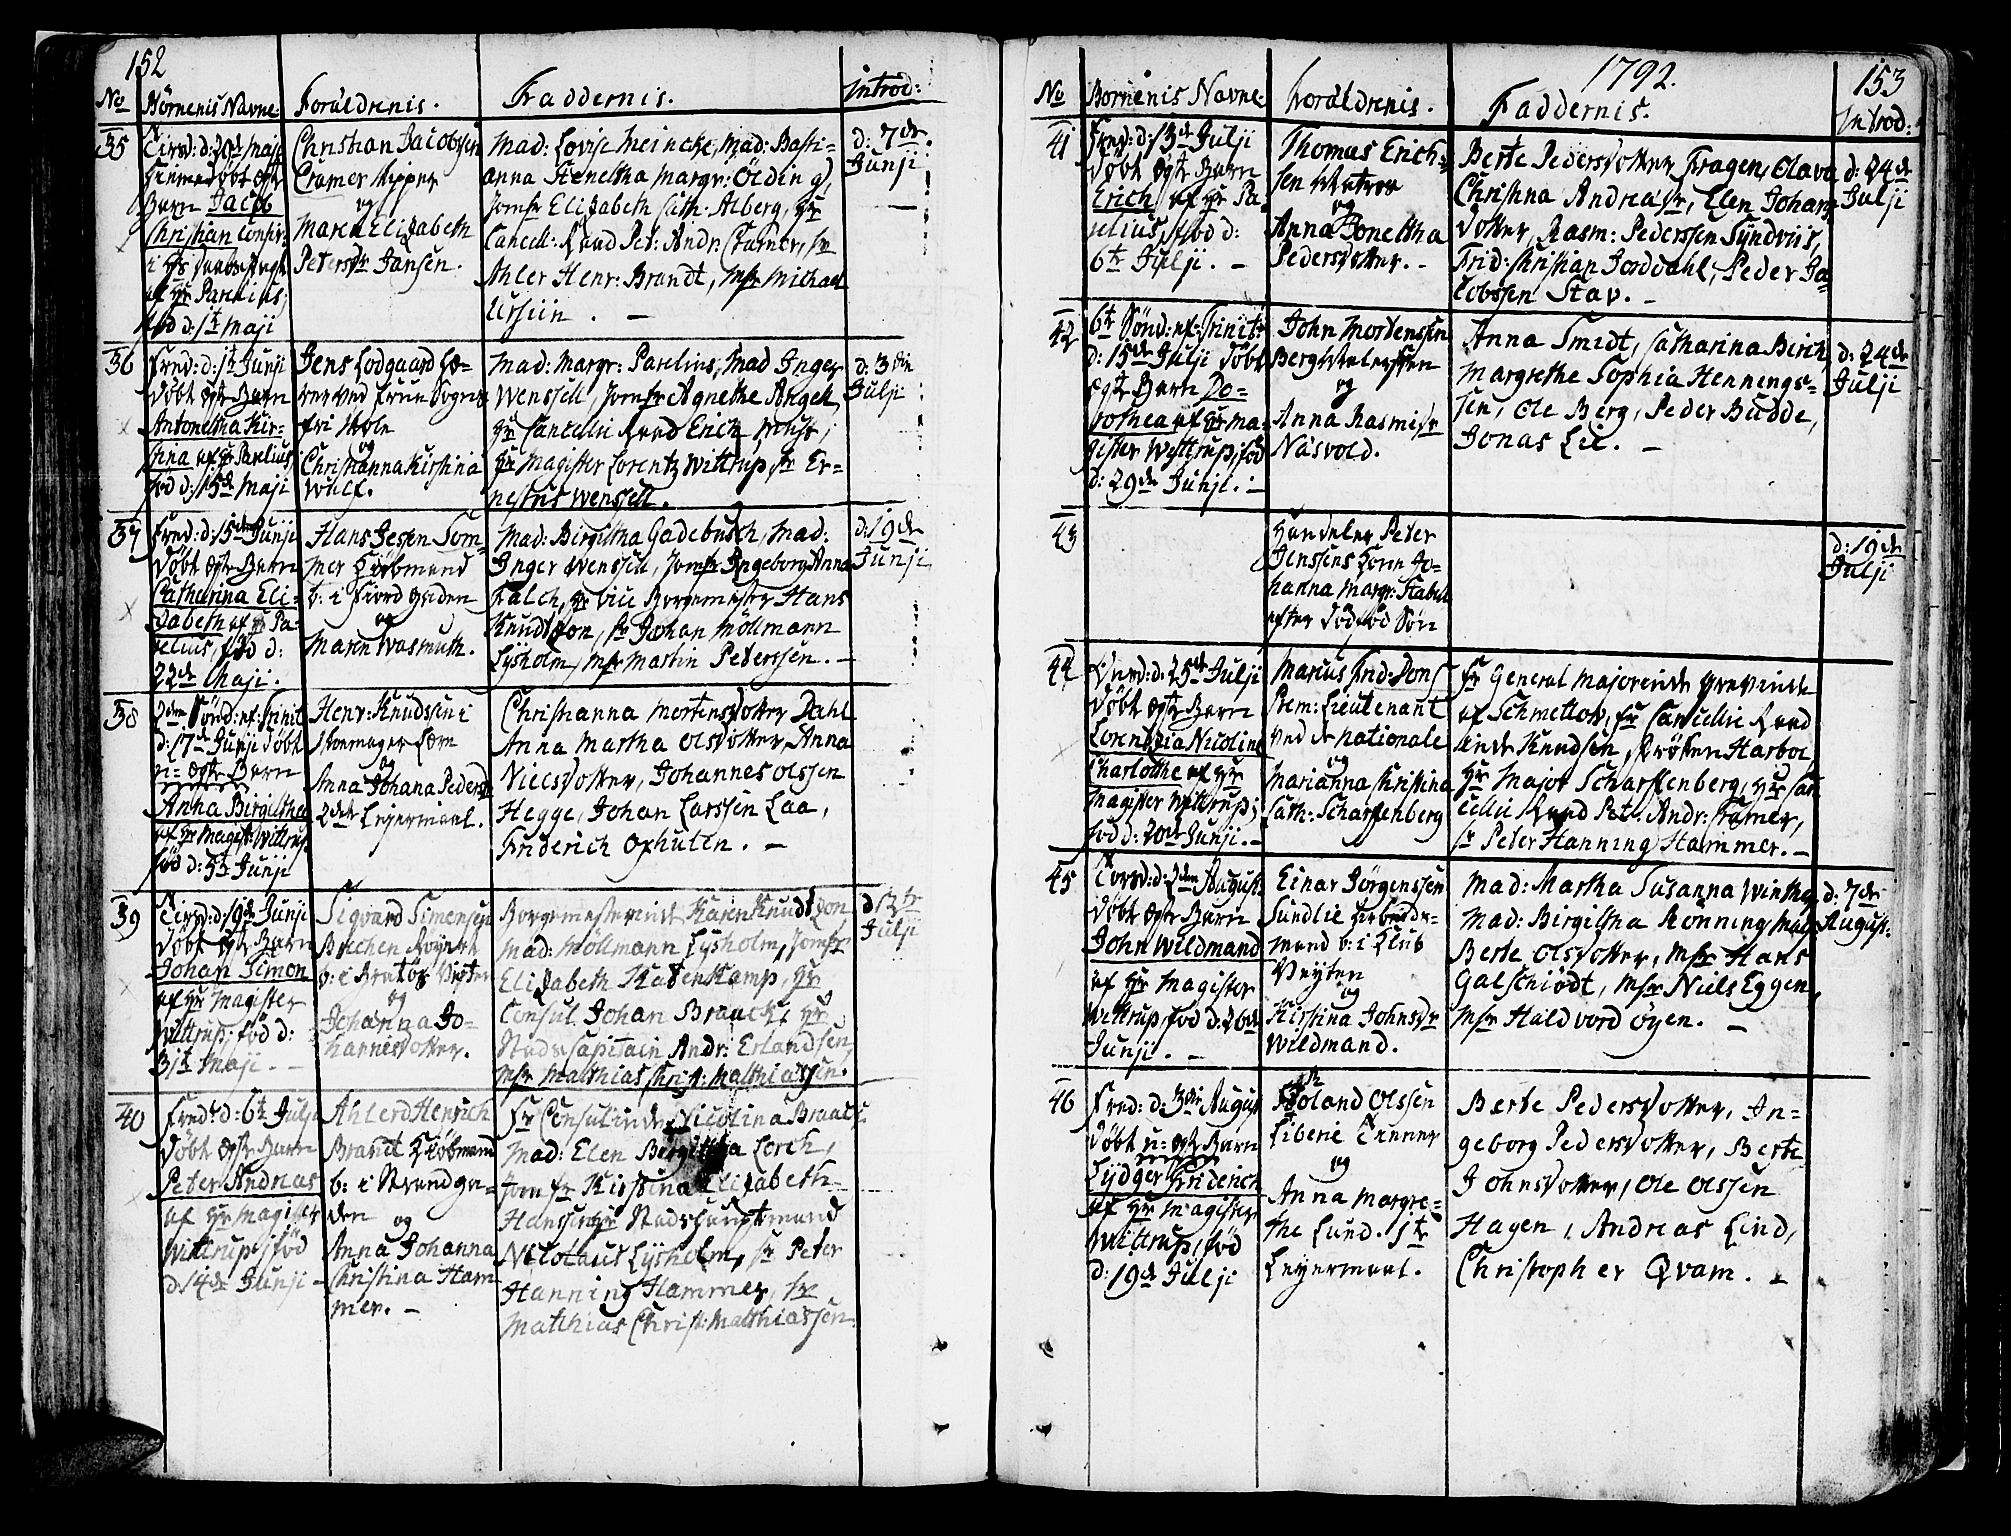 152
No
Børnenis Navne.
Forældrenis.
Faddernis.
Introd:
35
Tirsd: d: 29de Maji
hiemedøbt ægte
Barn Jacob
Christian Confir:
af Hr Parelius,
fød d: 1te Maji
Christian Jacobssen
Cramer Skipper
og
Maren Elizabeth
Petersdr Jansen.
Mad: Lovise Meincke, Mad: Basti-
anna Henritha Margr: Ölding,
Jomfr Elizabeth Cath: Alberg, Hr
Cancell: Raad Pet: Andr: Cramer, Sr
Ahler Henr: Brandt, Msr Michael
d: 7de
Junji
36
Fred: d: 1te Junji
døbt ægte Barn
Antonetha Kir-
stina af Hr Parelius
fød d: 15de Maji
Jens Lodgaard Læ-
rer ved Frue Sogns
fri Skole
og
Christianna Kirstina
Wulf.
Mad: Margr: Parelius, Mad Inger
Wenssell, Jomfr Agnethe Angell,
Hr Cancellie Raad Erich Must,
Hr Magister Lorentz Wittrup, Sr Er-
nestus Wenssell.
d: 3die
Julji
37
Fred: d: 15de Junji
døbt ægte Barn
Catharina Eli-
zabeth af Hr Pa-
relius, fød d:
22de Maji.
Hans Jesen Som-
mer Kiøbmand
b: i Fiord Gaden
og
Maren Wasmuth.
Mad: Birgitha Gadebusch, Mad:
Inger Wenssell, Jomfr Ingeborg Anna
Falch, Hr Vice Borgemester Hans
Knudtzon, Sr Johan Möllmann
Lysholm, Msr Martin Peterssen. -
d: 19de
Junji
38
2den Sønd: af: Trinit
d: 17de Junji døbt
u-ægte Barn
Anna Birgitha
af Hr Magist: Wittrup
fød d: 5te Junji
Henr: Knudssen i
Skomager Lærn
og
Anna Johana Pedersd
2det Leyermaal.
Christianna Mortensdotter Dahl
Anna Martha Olsdotter, Anna
Nielsdotter, Johannes Olssen
Hegge, Johan Larssen Laa,
Friderich Oxhulen. -
39
Tirsd: d: 19de Junji
døbt ægte Barn
Johan Simon
af Hr Magister
Wittrup, fød d:
31te Maji. -
Sigvard Simenssen
b: i
og
Johanna Jo-
hannesdotter.
Borgemesterinde Karen Knudtzon
Mad: Möllmann Lysholm, Jomfr
Elizabeth Hadenkamp, Hr
Consul Johan Braack, Hr
Stads Capitain Andr: Erlandsen,
Msr Matthias Christ: Matthiassen.
d: 17de
Julji
40
Fred: d: 6te Julji
døbt ægte Barn
Peter Andreas
af Hr Magister
Wittrup, fød
d: 14de Junji -
Ahlerd Henrich
Brandt Kiøbmand
b: i Strandga-
den
og
Anna Johanna
Christina Ham
mer. -
Fr Consulinde Nicolina Braack
Mad: Elen Birgittha Lerch,
Jomfr Kirstina Elizabeth
Hanssen, Hr Stadshauptmand
Nicolaus Lysholm, Sr Peter
Hanning Hammer, Sr
Matthias Christ: Matthiassen.
1792.
153
No
Børnenis Navne.
Forældrenis.
Faddernis.
Introd:
41
Fred: d: 13de Julji
døbt ægte Barn
Erich af Hr Pa-
relius, fød d:
6te Julji. -
Thomas Erich-
sen
og
Anna Jonetha
Pedersdotter. -
Berte Pedersdotter Fragen, Olava
Christina Andreadr, Elen Johans-
dotter, Rasm: Pederssen Syndvüs,
Frid: Christian Jorddahl, Peder Ja-
cobssen Stav. -
d: 24de
Julji
42
6te Sønd: af: Trinit:
d: 15de Julji døbt
ægte Barn Do-
rothea af Hr Ma-
gister Wittrup, fød
d: 29de Junji. -
John Mortenssen
Berg
og
Anna Rasmusdr
Næsvold.
Anna Smidt, Catharina Birch
Margrethe Sophia Hennings-
sen, Ole Berg, Peder Budde,
Jonas Lie. -
d: 24de
Julji
43
Handeler Peter
Jenssens Kone Jo-
hanna Margr: Stabel
efter dødfød Søn
d: 19de
Julji
44
Onsd: d: 25de Julji
døbt ægte Barn
Lorentzia Nicoline
Charlothe af Hr
Magister Wittrup,
fød d: 20de Junji. -
Marcus Frid: Dons
Prem: Lieutenant
ved de nationale
og
Marianna Christina
Cath: Scharffenberg
Fr General Majorinde Grevinde
af Schmettow, Fr Cancellie Raad
inde Knudsen, Frøken Harboe,
Hr Major Scharffenberg, Hr Can
cellie Raad Pet: Andr: Cramer,
Sr Peter Hanning Hammer. -
45
Torsd: d: 2den August
døbt ægte Barn
John Wildmand
af Hr Magister
Wittrup, fød d: 26de
Junji. -
Einar Jörgenssen
Sundlie Arbeids-
mand b: i Klub
Veyten
og
Kirstina Johnsdr
Wildmand.
Mad: Martha Susanna Winther
Mad: Birgitha Rönning, Mad
Berte Olsdotter, Msr Hans
Galschiödt, Msr Niels Eggen,
Msr Haldvord Øyen. -
d: 7de
August.
46
Fred: d: 3die August
døbt u-ægte Barn
Lydger Friderich
af Hr Magister
Wittrup, fød
d: 19de Julji
Roland Olssen
Liberie Tienner
og
Anna Margre-
the Lund. 1te
Leyermaal.
Berte Pedersdotter, In-
geborg Pedersdotter, Berte
Johnsdotter, Ole Olssen
Hagen, Andreas Lind,
Christopher Qvam. -